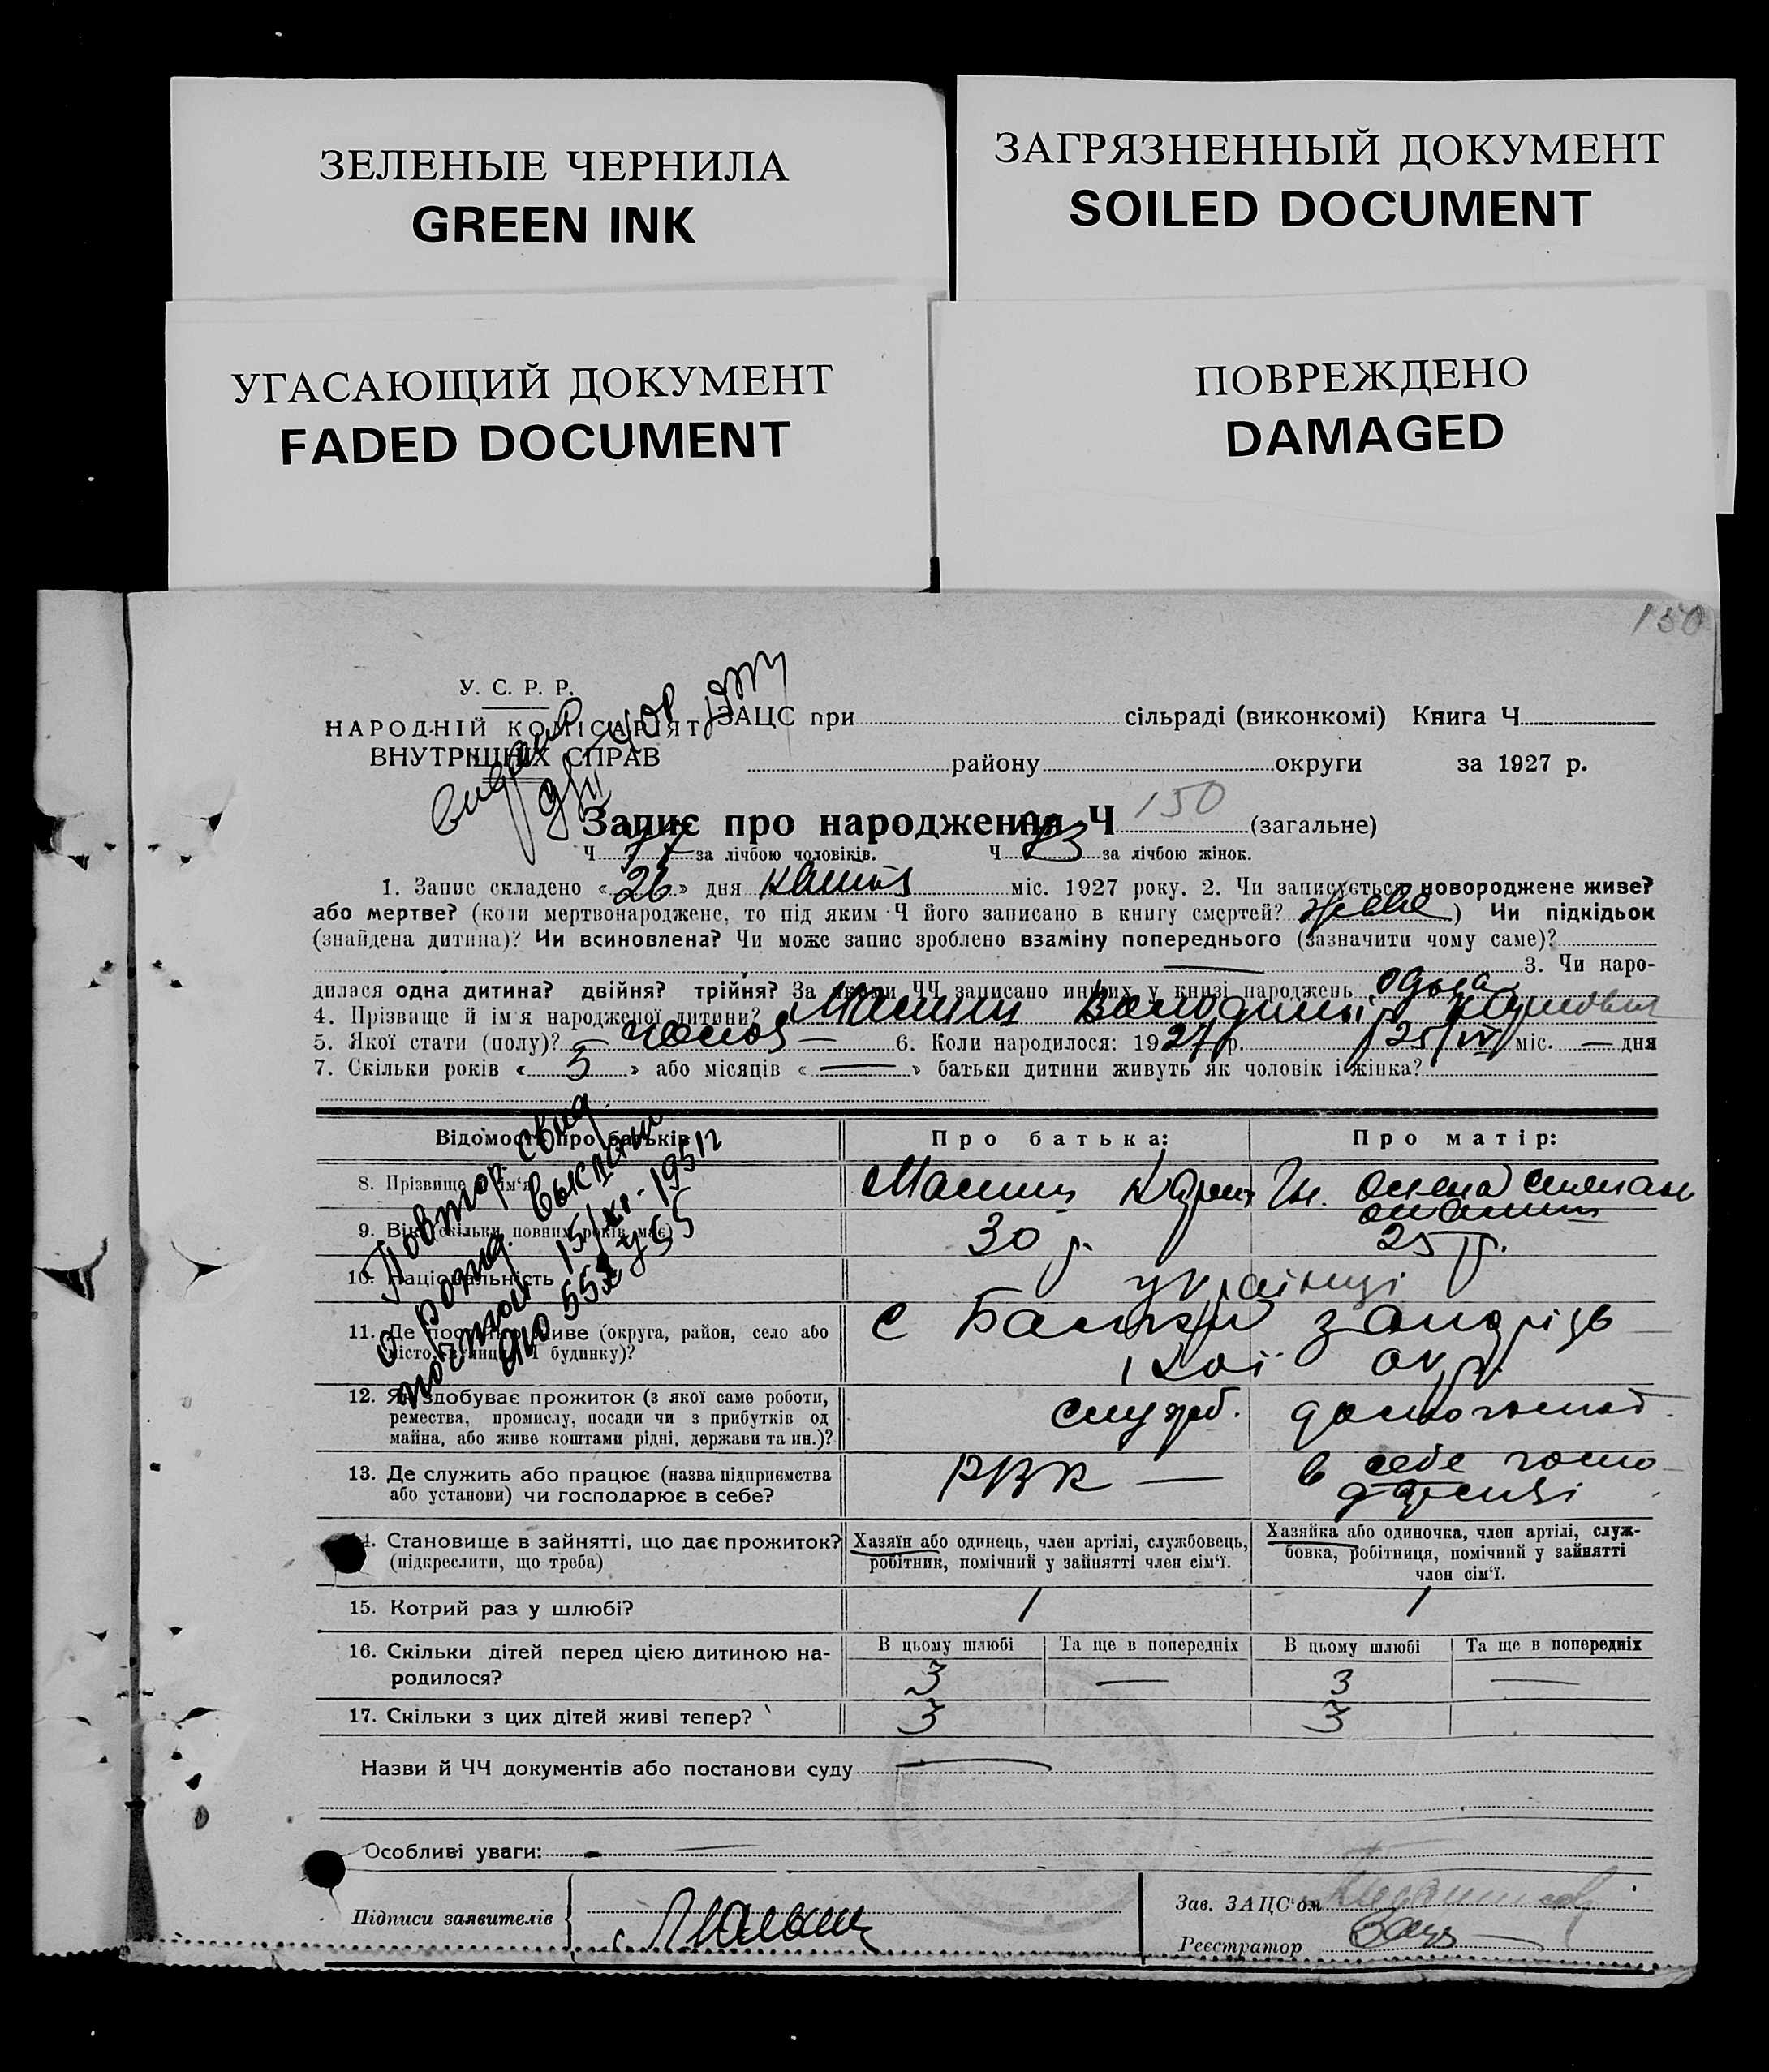 ЗЕЛЕНЫЕ ЧЕРНИЛА
GREEN INK
ЗАГРЯЗНЕННЫЙ ДОКУМЕНТ
SOILED DOCUMENT
УГАСАЮЩИЙ ДОКУМЕНТ
FADED DOCUMENT
ПОВРЕЖДЕНО
DAMAGED
150
У. С. Р. Р.
НАРОДНІЙ КОМІСАРІЯТ
ВНУТРІШНІХ СПРАВ
ЗАЦС при сільраді (виконкомі) Книга Ч
району округи за 1927 р.
Запис про народження Ч 150 (загальне)
Ч 77 за лічбою чоловіків. Ч 73 за лічбою жінок.
1. Запис складено «26» дня квітня міс. 1927 року. 2. Чи записується новороджене живе?
або мертве? (коли мертвонароджене, то під яким Ч його записано в книгу смертей? живе) Чи підкідьок
(знайдена дитина)? Чи всиновлена? Чи може запис зроблено взаміну попереднього (зазначити чому саме)?
— 3. Чи наро-
дилася одна дитина? двійня? трійня? За якими ЧЧ записано инших у книзі народжень одна
4. Прізвище й ім'я народженої дитини? Володимир
5. Якої стати (полу)? — чолов — 6. Коли народилося: 1927 р. 25/IV міс. — дня
7. Скільки років «5» або місяців «—» батьки дитини живуть як чоловік і жінка?
Відомості про батьків
Про батька:
Про матір:
8. Прізвище й ім'я
9. Вік (скільки повних років має)
30 р.
25 р.
10. Національність
українці
11. Де постійно живе (округа, район, село або
місто, вулиця і Ч будинку)?
с Запоріць
кої окр.
12. Як здобуває прожиток (з якої саме роботи,
ремества, промислу, посади чи з прибутків од
майна, або живе коштами рідні, держави та ин.)?
служб.
домогоспод.
13. Де служить або працює (назва підприємства
або установи) чи господарює в себе?
РВК —
в себе госпо-
14. Становище в зайнятті, що дає прожиток?
(підкреслити, що треба)
Хазяїн або одинець, член артілі, службовець,
робітник, помічний у зайнятті член сім'ї.
Хазяйка або одиночка, член артілі, служ-
бовка, робітниця, помічний у зайнятті
член сім'ї.
15. Котрий раз у шлюбі?
1
1
16. Скільки дітей перед цією дитиною на-
родилося?
В цьому шлюбі Та ще в попередніх В цьому шлюбі Та ще в попередніх
3 — 3 —
17. Скільки з цих дітей живі тепер?
3
3
Назви й ЧЧ документів або постанови суду —
Особливі уваги: —
Підписи заявителів
Зав. ЗАЦС'ом
Реєстратор
Повтор. свид.
о рожд. выслано
почтой 15/XI-1951 г